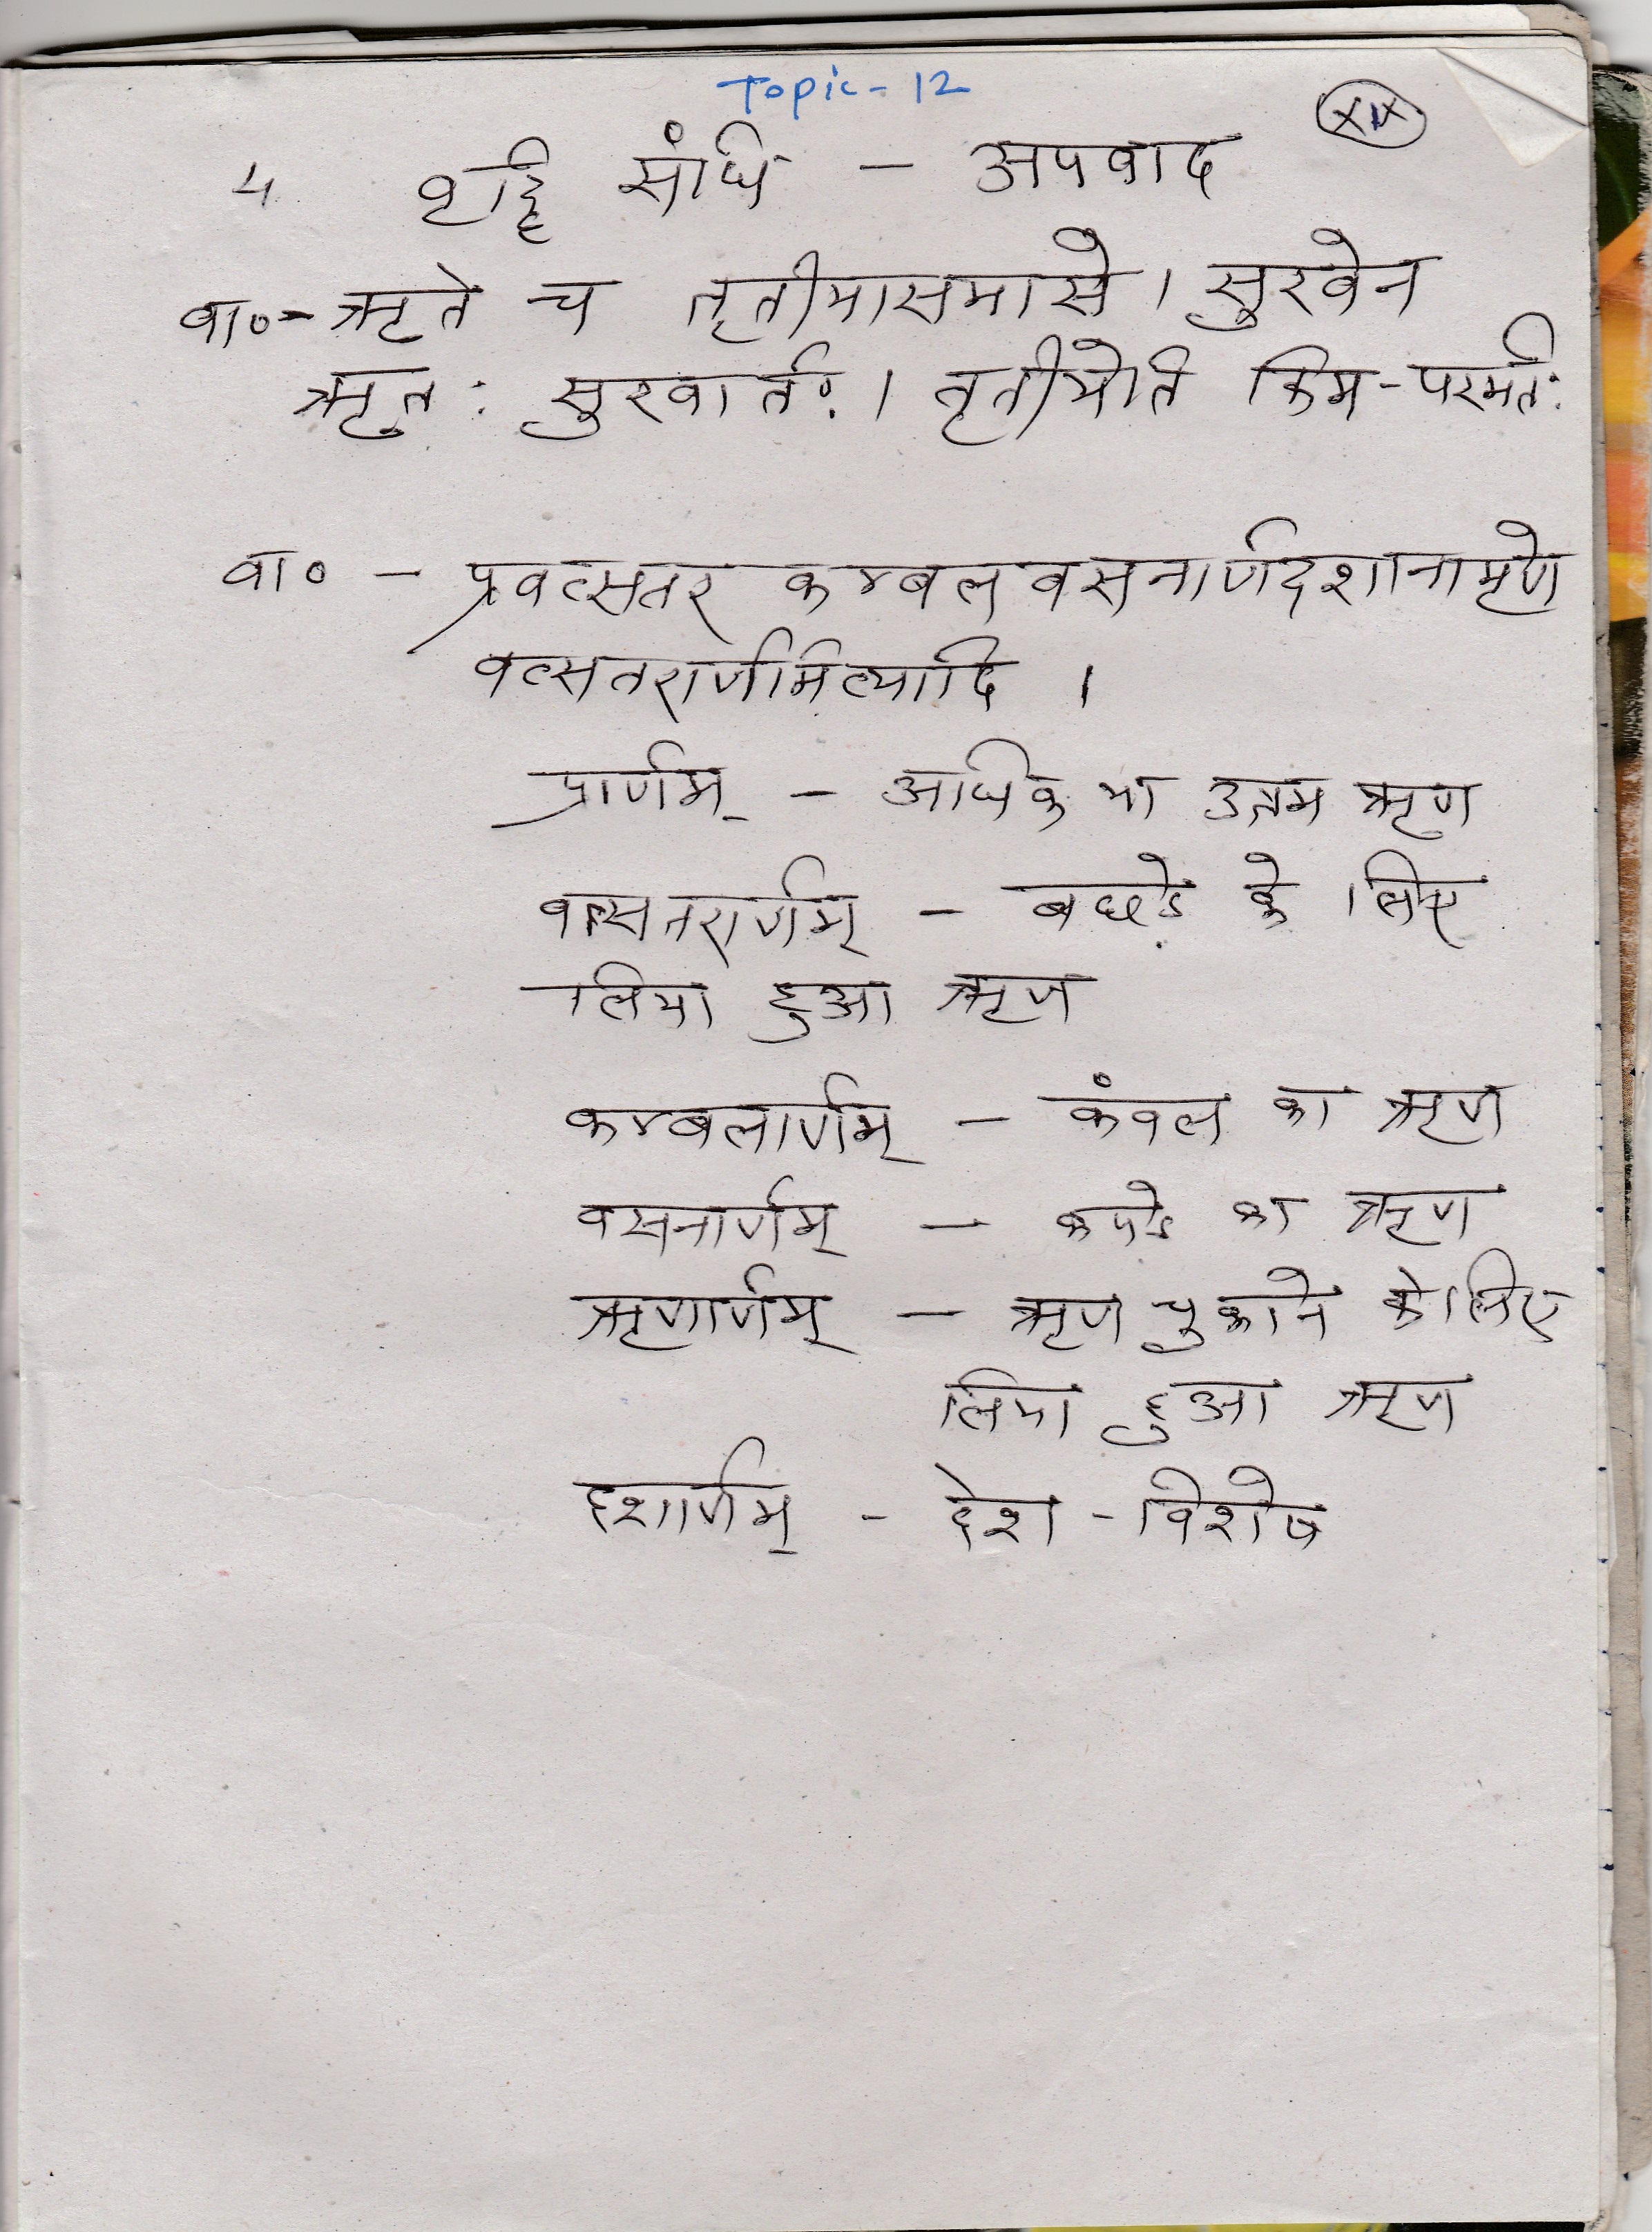 Topic - 12
XIX
4 वृद्धि संधि - अपवाद
वा०- ऋते च तृतीयासमासे । सुखेन
ऋतः सुखार्तः । तृतीयेति किम - परमर्तः
वा० - प्रवत्सतर कम्बल वसनार्णदशानामृणे
वत्सतरार्णमित्यादि ।
प्रार्णम् - अधिक या उत्तम ऋण
वत्सतरार्णम् - बछड़े के लिए
लिया हुआ ऋण
कम्बलार्णम् - कंवल का ऋण
वसनार्णम् - कपडे का ऋण
ऋणार्णम् - ऋण चुकाने के लिए
लिया हुआ ऋण
दशार्णम् - देश - विशेष